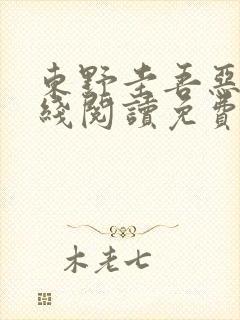 東野圭吾惡
綫閱讀免費
木老七